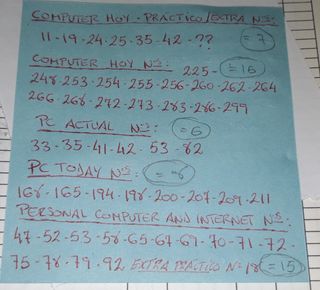 COMPUTER HOY - PRÁCTICO/EXTRA Nºs:
11-19-24-25-35-42-?? =7
COMPUTER HOY Nºs: 225- =15
248-253-254-255-256-260-262-264
266-268-272-273-283-286-299
PC ACTUAL Nºs: =6
33-35-41-42-53-82
PC TODAY Nºs:
168-165-194-198-200-207-209-211
PERSONAL COMPUTER AND INTERNET Nºs:
47-52-53-58-65-67-67-70-71-72-
75-78-79-92 EXTRA PRÁCTICO Nº 18 =15